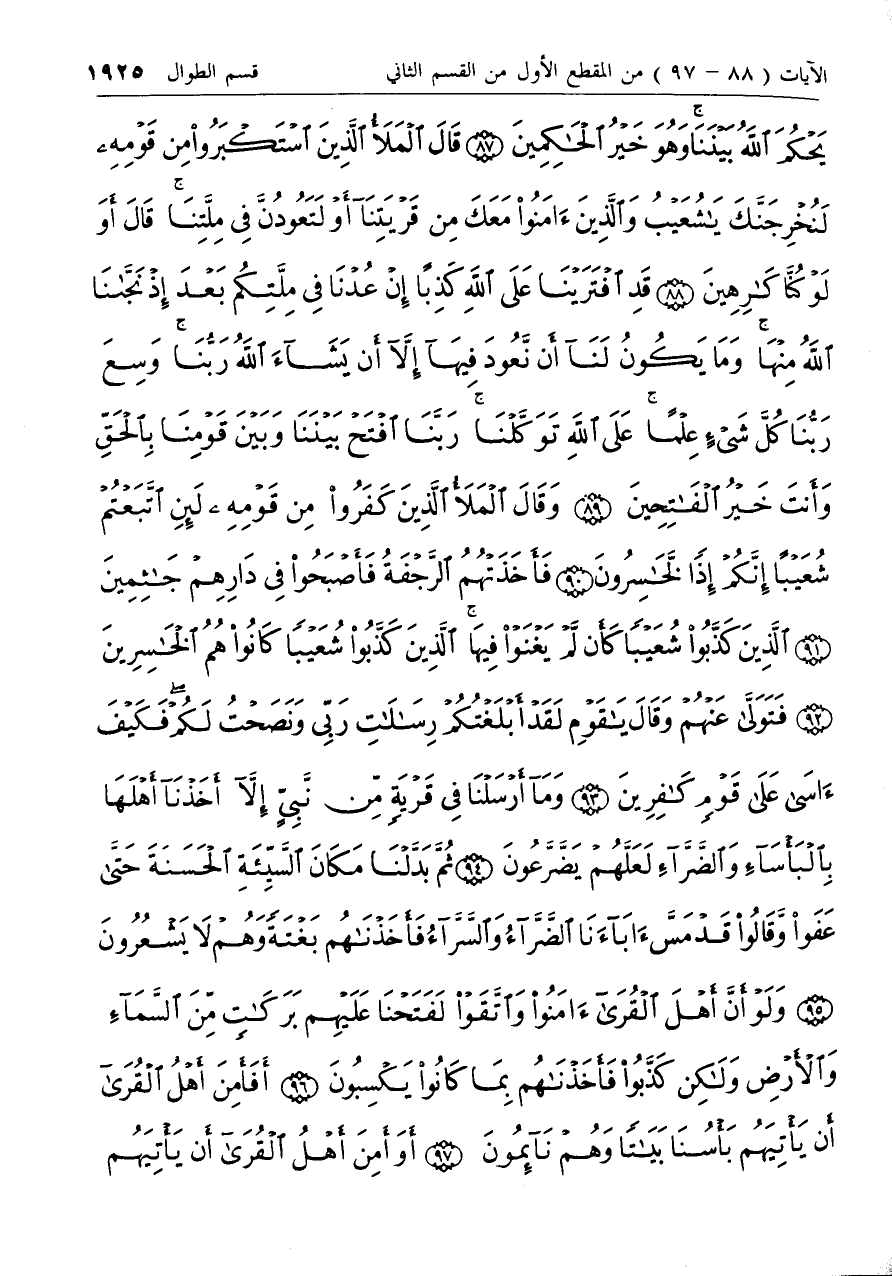 الآيات ( ٨٨ - ٩٧ ) من المقطع الأول من القسم الثاني قسم الطوال ١٩٢٥
يَحْكُمَ ٱللَّهُ بَيْنَنَا ۚ وَهُوَ خَيْرُ ٱلْحَٰكِمِينَ ٨٧ قَالَ ٱلْمَلَأُ ٱلَّذِينَ ٱسْتَكْبَرُوا۟ مِن قَوْمِهِۦ
لَنُخْرِجَنَّكَ يَٰشُعَيْبُ وَٱلَّذِينَ ءَامَنُوا۟ مَعَكَ مِن قَرْيَتِنَآ أَوْ لَتَعُودُنَّ فِى مِلَّتِنَا ۚ قَالَ أَوَ
لَوْ كُنَّا كَٰرِهِينَ ٨٨ قَدِ ٱفْتَرَيْنَا عَلَى ٱللَّهِ كَذِبًا إِنْ عُدْنَا فِى مِلَّتِكُم بَعْدَ إِذْ نَجَّىٰنَا
ٱللَّهُ مِنْهَا ۚ وَمَا يَكُونُ لَنَآ أَن نَّعُودَ فِيهَآ إِلَّآ أَن يَشَآءَ ٱللَّهُ رَبُّنَا ۚ وَسِعَ
رَبُّنَا كُلَّ شَىْءٍ عِلْمًا ۚ عَلَى ٱللَّهِ تَوَكَّلْنَا ۚ رَبَّنَا ٱفْتَحْ بَيْنَنَا وَبَيْنَ قَوْمِنَا بِٱلْحَقِّ
وَأَنتَ خَيْرُ ٱلْفَٰتِحِينَ ٨٩ وَقَالَ ٱلْمَلَأُ ٱلَّذِينَ كَفَرُوا۟ مِن قَوْمِهِۦ لَئِنِ ٱتَّبَعْتُمْ
شُعَيْبًا إِنَّكُمْ إِذًا لَّخَٰسِرُونَ ٩٠ فَأَخَذَتْهُمُ ٱلرَّجْفَةُ فَأَصْبَحُوا۟ فِى دَارِهِمْ جَٰثِمِينَ
٩١ ٱلَّذِينَ كَذَّبُوا۟ شُعَيْبًا كَأَن لَّمْ يَغْنَوْا۟ فِيهَا ۚ ٱلَّذِينَ كَذَّبُوا۟ شُعَيْبًا كَانُوا۟ هُمُ ٱلْخَٰسِرِينَ
٩٢ فَتَوَلَّىٰ عَنْهُمْ وَقَالَ يَٰقَوْمِ لَقَدْ أَبْلَغْتُكُمْ رِسَٰلَٰتِ رَبِّى وَنَصَحْتُ لَكُمْ ۖ فَكَيْفَ
ءَاسَىٰ عَلَىٰ قَوْمٍ كَٰفِرِينَ ٩٣ وَمَآ أَرْسَلْنَا فِى قَرْيَةٍ مِّن نَّبِىٍّ إِلَّآ أَخَذْنَآ أَهْلَهَا
بِٱلْبَأْسَآءِ وَٱلضَّرَّآءِ لَعَلَّهُمْ يَضَّرَّعُونَ ٩٤ ثُمَّ بَدَّلْنَا مَكَانَ ٱلسَّيِّئَةِ ٱلْحَسَنَةَ حَتَّىٰ
عَفَوا۟ وَّقَالُوا۟ قَدْ مَسَّ ءَابَآءَنَا ٱلضَّرَّآءُ وَٱلسَّرَّآءُ فَأَخَذْنَٰهُم بَغْتَةً وَهُمْ لَا يَشْعُرُونَ
٩٥ وَلَوْ أَنَّ أَهْلَ ٱلْقُرَىٰٓ ءَامَنُوا۟ وَٱتَّقَوْا۟ لَفَتَحْنَا عَلَيْهِم بَرَكَٰتٍ مِّنَ ٱلسَّمَآءِ
وَٱلْأَرْضِ وَلَٰكِن كَذَّبُوا۟ فَأَخَذْنَٰهُم بِمَا كَانُوا۟ يَكْسِبُونَ ٩٦ أَفَأَمِنَ أَهْلُ ٱلْقُرَىٰٓ
أَن يَأْتِيَهُم بَأْسُنَا بَيَٰتًا وَهُمْ نَآئِمُونَ ٩٧ أَوَ أَمِنَ أَهْلُ ٱلْقُرَىٰٓ أَن يَأْتِيَهُم